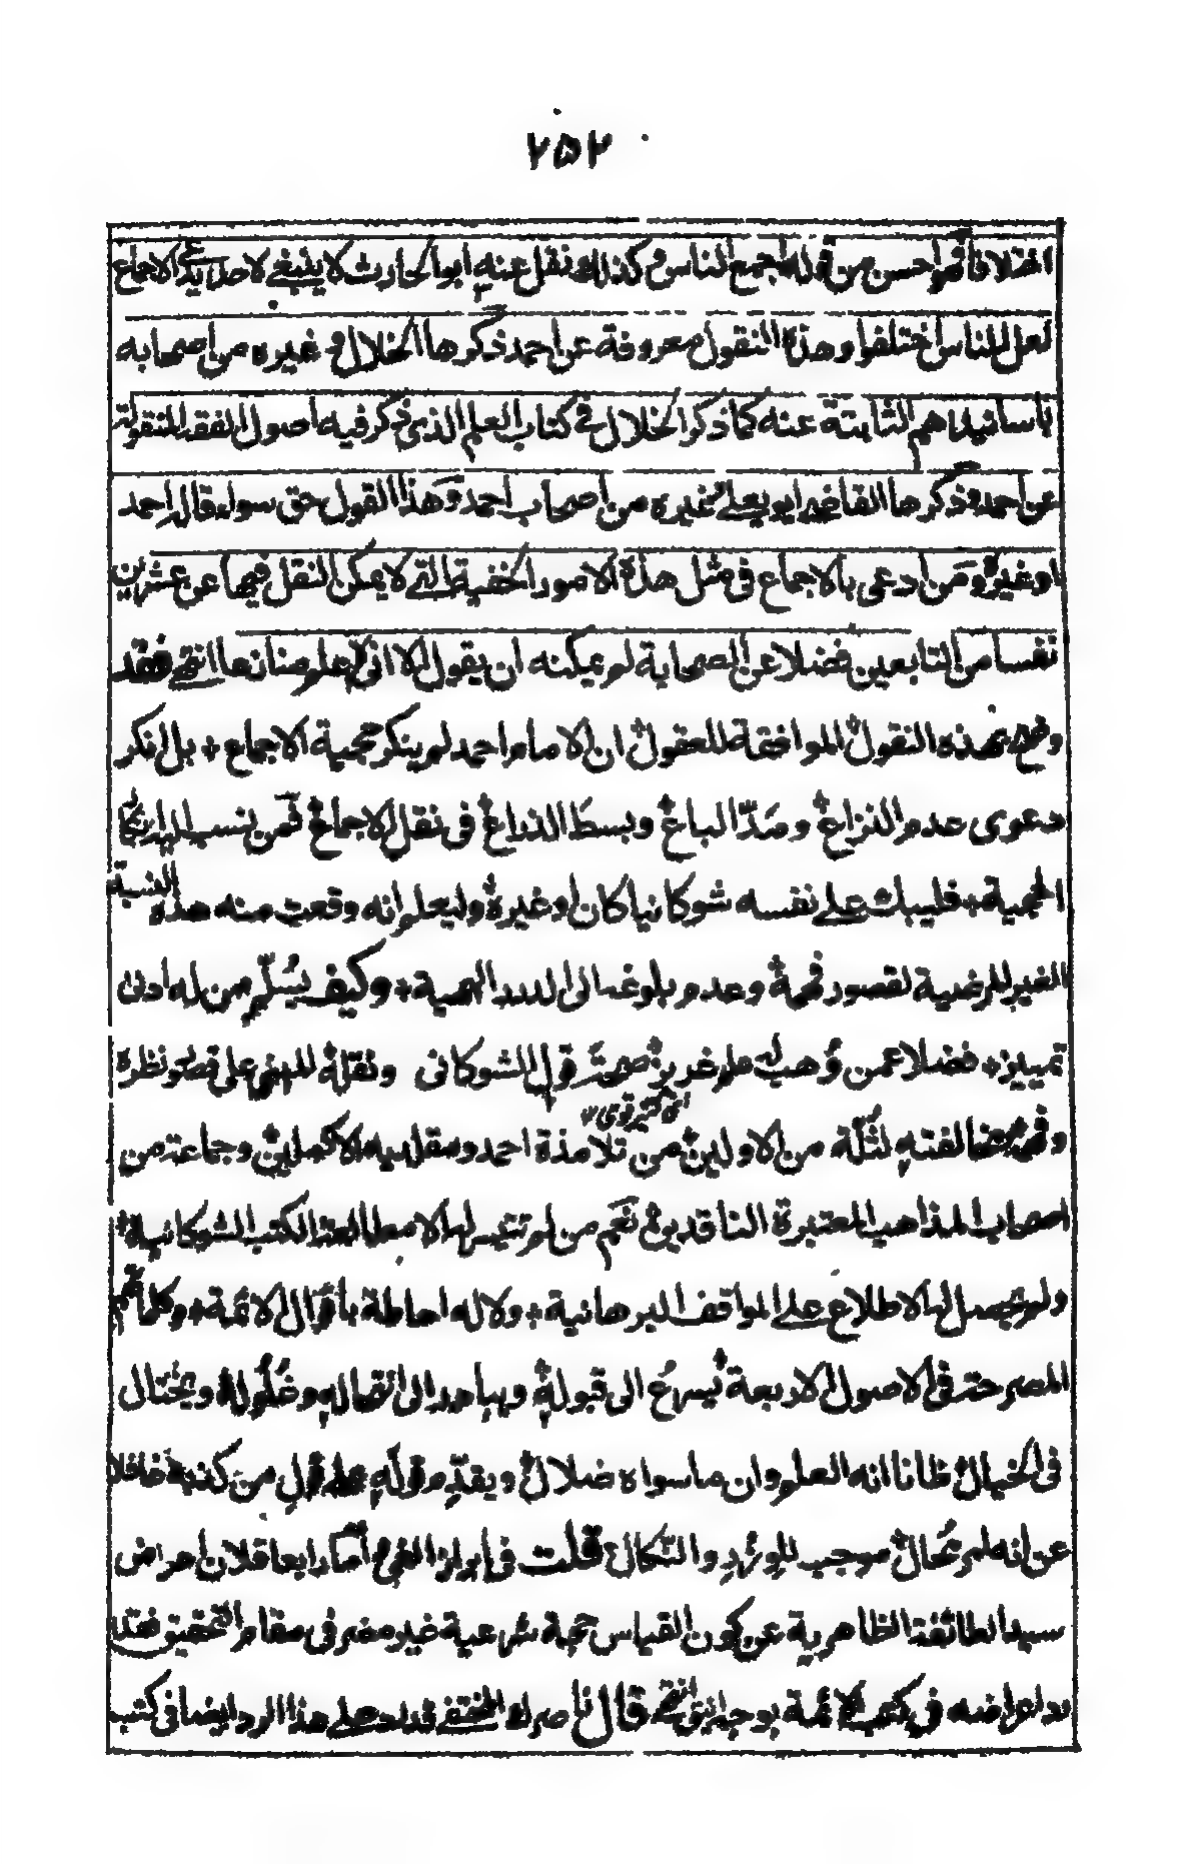 ٢٥٢
اختلافا فهو احسن من قوله اجمع الناس وكذلك نقل عنه ابو الحارث لا ينبغي لاحد ان يدعى الاجماع
لعل الناس اختلفوا وهذه النقول معروفة عن احمد ذكرها الخلال وغيره من اصحابه
باسانيدهم الثابتة عنه كما ذكر الخلال في كتاب العلم الذى ذكر فيه اصول الفقه المنقولة
عن احمد وذكرها القاضي ابو يعلى وغيره من اصحاب احمد وهذا القول حق سواء قاله احمد
او غيره ومن ادعى بالاجماع فى مثل هذه الامور الخفية التى لا يمكن النقل فيها عن عشرين
نفسا من التابعين فضلا عن الصحابة لم يمكنه ان يقول الا انى لا اعلم منازعا انتهى فقد
وضح بهذه النقول الموافقة للعقول ان الامام احمد لم ينكر حجية الاجماع + بل انكر
دعوى عدم النزاع ومد الباع وبسط الذراع فى نقل الاجماع فمن ينسب اليه انكار
الحجية + فليبك على نفسه شوكانيا كان او غيره وليعلم انه وقعت منه هذه النسبة
الغير المرضية لقصور فهمه وعدم بلوغه الى الدرر البهية + وكيف يسلم من له ادنى
تمييز + فضلا عمن وهب له علم غزير صحة قول الشوكانى ونقله المبنى على قصور نظره
وفهمه مخالفته لثلة من الاولين من تلامذة احمد ومقلديه الاكملين وجماعة من
اى كثير قوى ١٢
اصحاب المذاهب المعتبرة الناقدين نعم من لم تتيسر له الا مطالعة الكتب الشوكانية
ولم يحصل له الاطلاع على المواقف البرهانية + ولا له احاطة باقوال الائمة + وكلماتهم
المصرحة فى الاصول الاربعة يسرع الى قبوله ويبادر الى انتحاله وغلوله ويختال
فى الخيال ظانا انه العلم وان ما سواه ضلال ويقدم قوله على قول من كذبه غافلا
عن انه امر محال موجب للوزر والنكال قلت فى ابراز الغي اما رابعا فلان اعراض
سيد الطائفة الظاهرية عن كون القياس حجة شرعية غير مضر فى مقام التحقيق فقد
رد اعراضه فى كتب الائمة بوجه انيق انتهى قال ناصرك المختفى قد رد على هذا الرد ايضا فى كتب